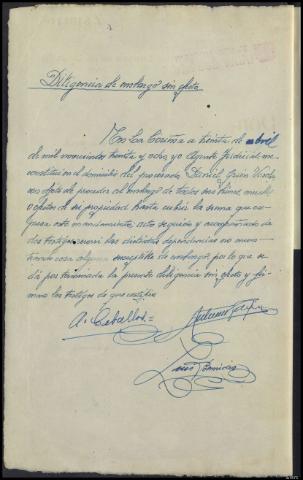 Diligencia de embargo sin efecto
En La Coruña a treinta de abril
de mil novecientos treinta y ocho, yo Agente Judicial me
constituí en el domicilio del procesado Daniel
efecto de proceder al embargo de todos sus bienes muebles
efectos de su propiedad hasta cubrir la suma que ex-
presa este mandamiento, acto seguido y acompañado de
dos testigos recorrí las distintas dependencias no encon-
trando cosa alguna susceptible de embargo, por lo que se
dió por terminada la presente diligencia sin efecto y fir-
man los testigos de que certifico
A. Ceballos =
Luis